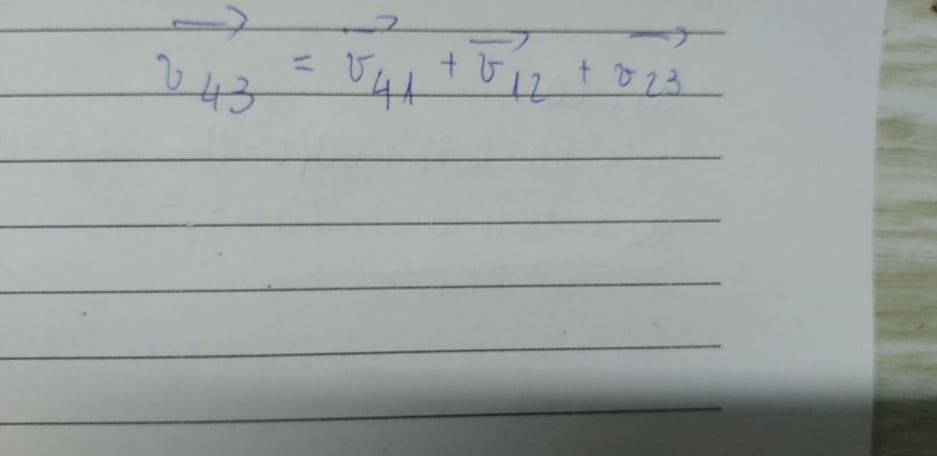 $\overrightarrow{v}_{43} = \overrightarrow{v}_{41} + \overrightarrow{v}_{12} + \overrightarrow{v}_{23}$